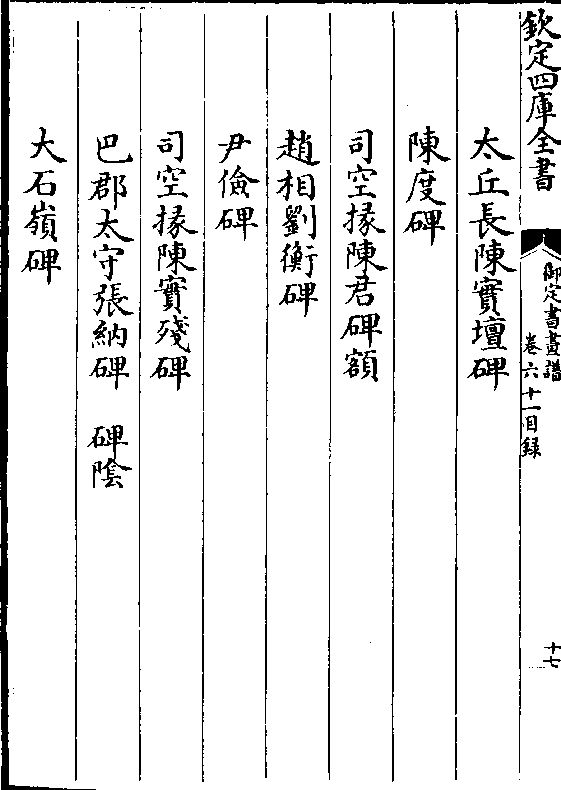 欽定四庫全書
御定書畫譜
卷六十一目録
十七
太丘長陳實壇碑
陳度碑
司空掾陳君碑額
趙相劉衡碑
尹儉碑
司空掾陳實殘碑
巴郡太守張納碑 碑陰
大石嶺碑